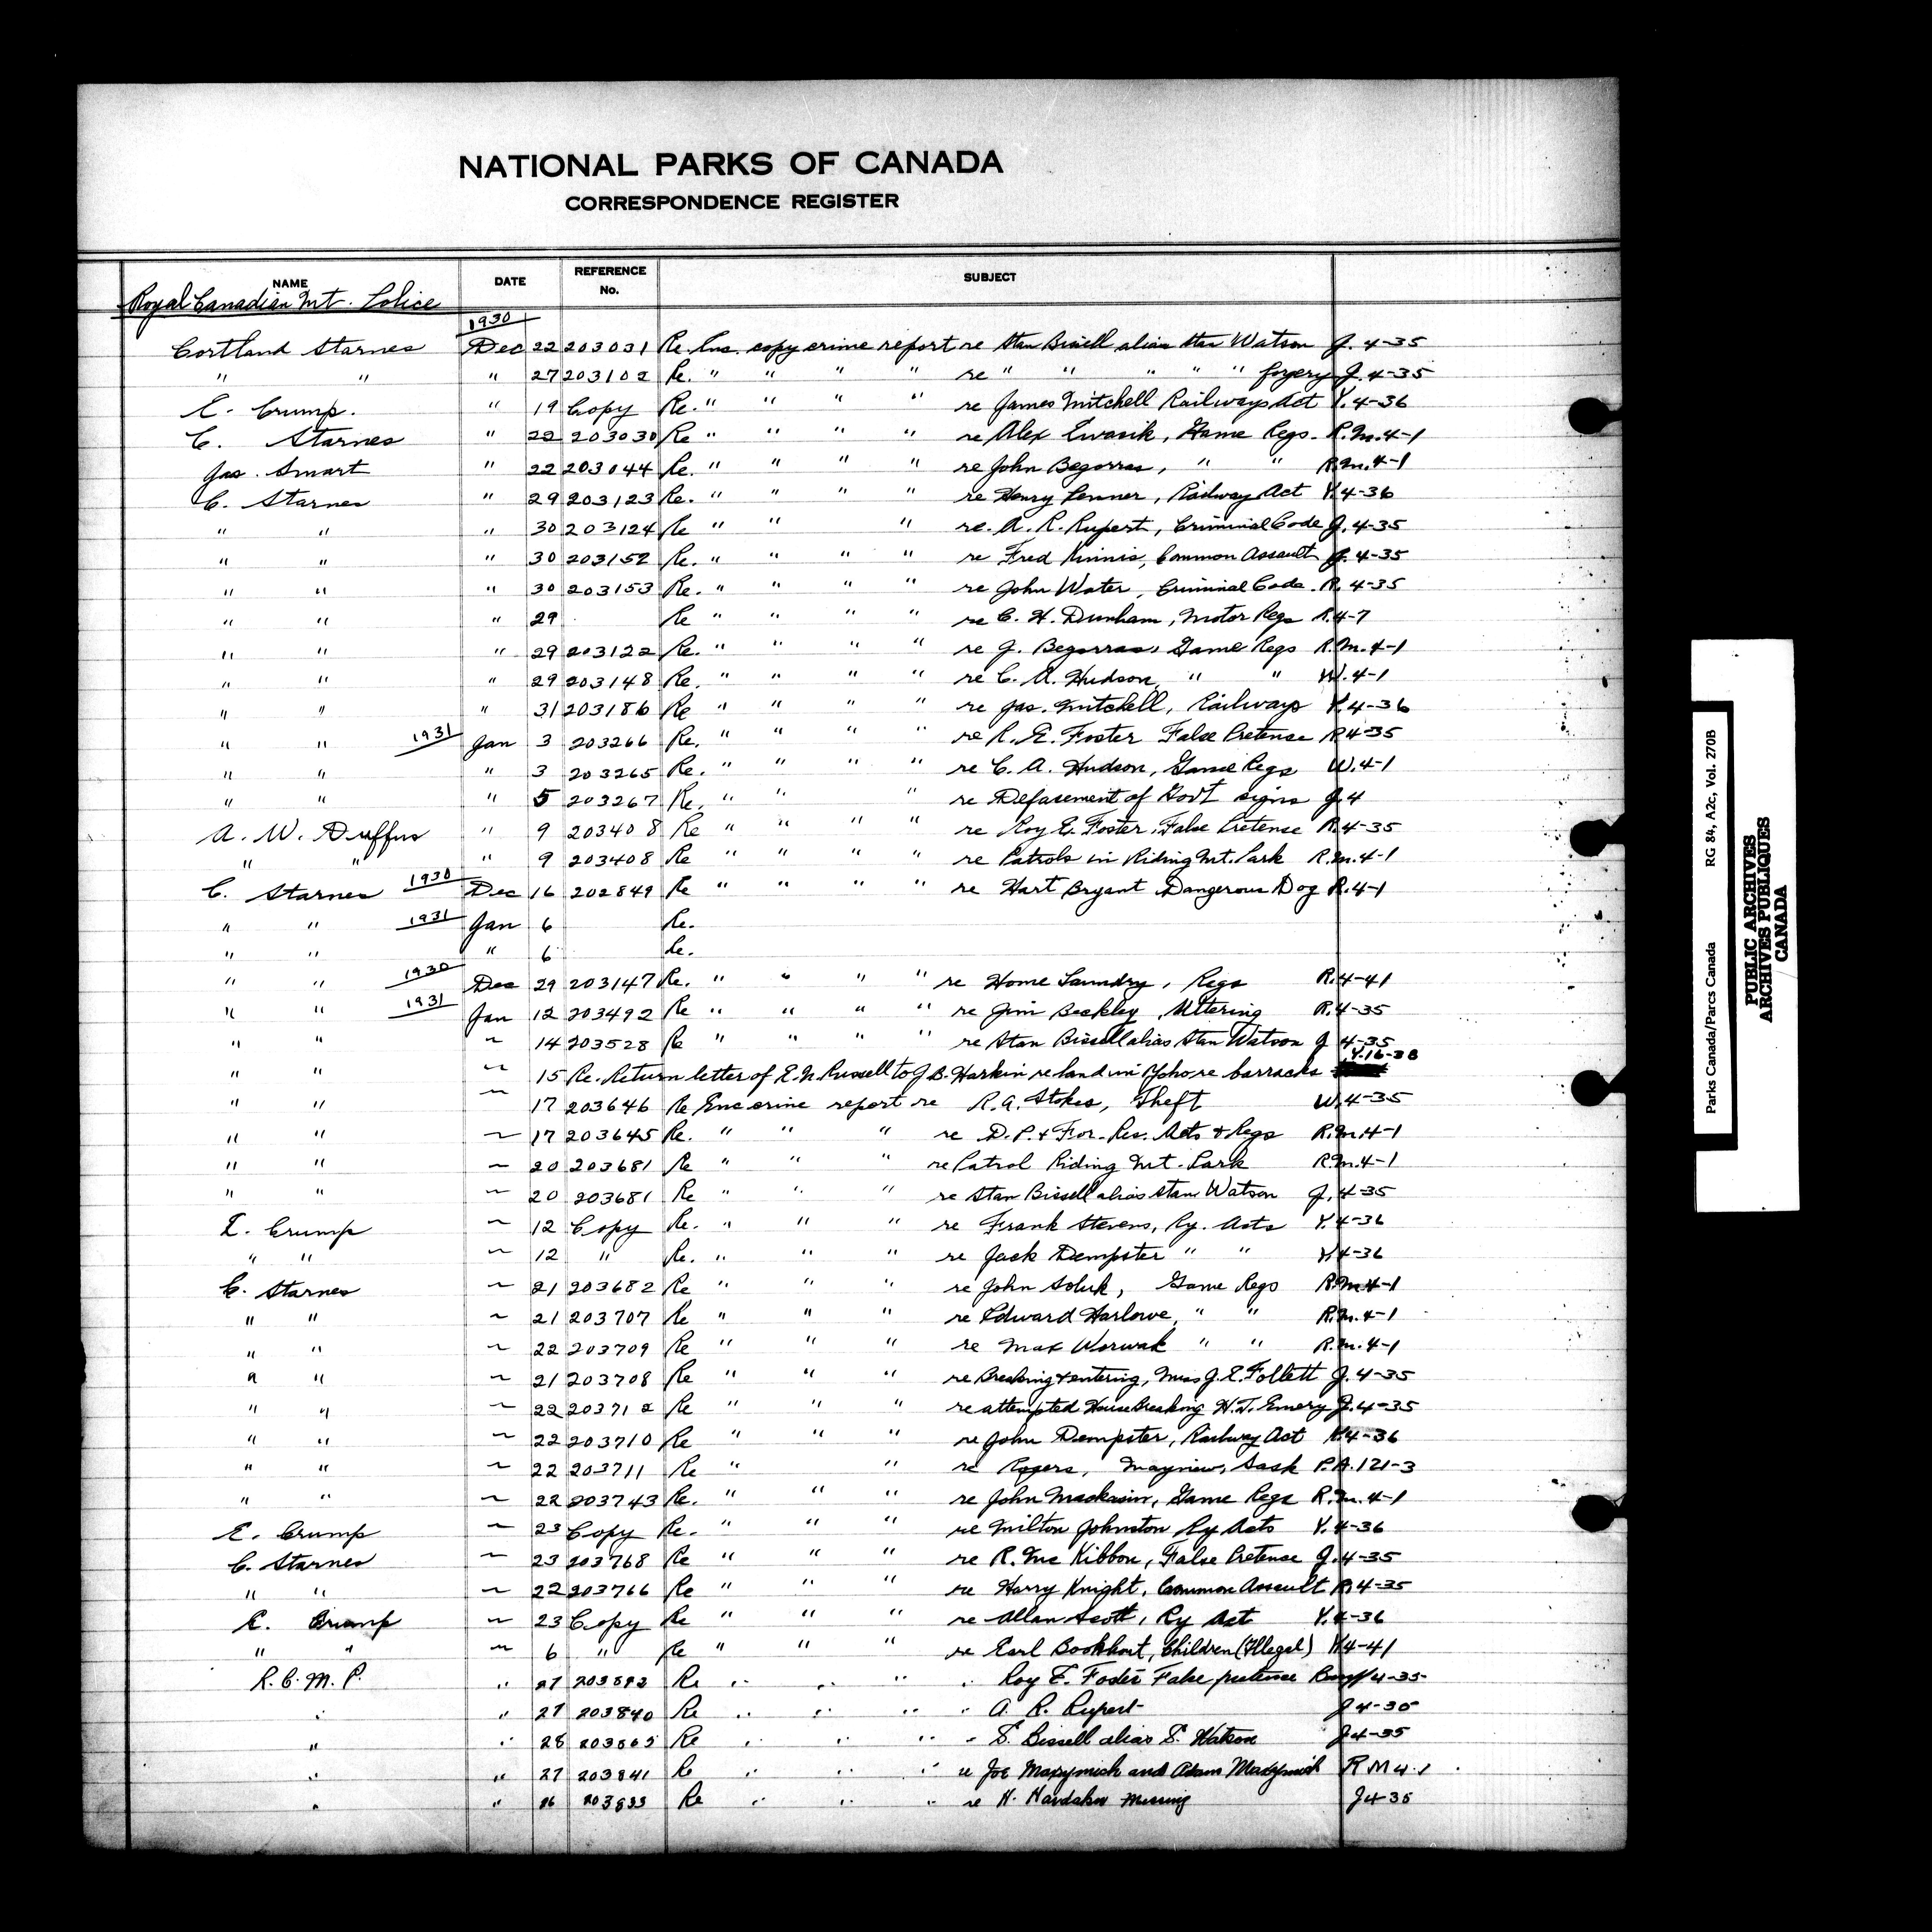 NATIONAL PARKS OF CANADA
CORRESPONDENCE REGISTER
NAME DATE REFERENCE No. SUBJECT
Royal Canadian Mt. Police
1930
Cortland Starnes Dec 22 203031 Re. Enc. copy crime report re Stan Bissell alias Stan Watson J. 4-35
" " " 27 203102 Re. " " " " re " " " " " forgery J. 4-35
E. Crump. " 19 Copy Re. " " " " re James Mitchell Railways Act Y. 4-36
C. Starnes " 22 203030 Re " " " " re Alex Ewasik, Game Regs. R.M. 4-1
Jas. Smart " 22 203044 Re. " " " " re John Begorras, " " R.M. 4-1
C. Starnes " 29 203123 Re. " " " " re Henry Penner, Railway Act Y. 4-36
" " " 30 203124 Re " " " re. A. R. Rupert, Criminal Code J. 4-35
" " " 30 203152 Re. " " " " re Fred Kinnis, Common Assault J. 4-35
" " " 30 203153 Re. " " " " re John Water, Criminal Code. R. 4-35
" " " 29 Re " " " " re C. H. Dunham, Motor Regs R. 4-7
" " " 29 203122 Re. " " " " re J. Begorras, Game Regs R.M. 4-1
" " " 29 203148 Re. " " " " re C. A. Hudson, " " W. 4-1
" " " 31 203186 Re " " " " re Jas. Mitchell, Railways Y. 4-36
" " 1931 Jan 3 203266 Re. " " " " re R. E. Foster False Pretense R 4-35
" " " 3 203265 Re. " " " " re C. A. Hudson, Game Regs W. 4-1
" " " 5 203267 Re. " " " re Defasement of Govt signs J. 4
A. W. Duffus " 9 203408 Re " " " " re Roy E. Foster, False Pretense R. 4-35
" " " 9 203408 Re " " " " re Patrols in Riding Mt. Park R.M. 4-1
C. Starnes 1930 Dec 16 202849 Re " " " " re Hart Bryant Dangerous Dog R. 4-1
" " 1931 Jan 6 Re.
" " " 6 Re.
" " 1930 Dec 29 203147 Re. " " " " re Home Laundry, Regs R. 4-41
" " 1931 Jan 12 203492 Re " " " " re Jim Beckley, Uttering R. 4-35
" " ~ 14 203528 Re " " " " re Stan Bissell alias Stan Watson J 4-35
" " ~ 15 Re. Return letter of E. N. Russell to J. B. Harkin re land in Yoho re barracks Y. 16-38
" " ~ 17 203646 Re Enc crime report re R. A. Stokes, Theft W. 4-35
" " ~ 17 203645 Re. " " " re D. P. & For. Res. Acts & Regs R.M. 4-1
" " ~ 20 203681 Re " " " re Patrol Riding Mt. Park R.M. 4-1
" " ~ 20 203681 Re " " " re Stan Bissell alias Stan Watson J. 4-35
E. Crump ~ 12 Copy Re. " " " re Frank Stevens, Ry. Acts Y. 4-36
" " ~ 12 " Re. " " " re Jack Dempster " " Y. 4-36
C. Starnes ~ 21 203682 Re " " " re John Soluk, Game Regs R.M. 4-1
" " ~ 21 203707 Re " " " re Edward Harlowe, " " R.M. 4-1
" " ~ 22 203709 Re " " " re Max Worwak " " R.M. 4-1
" " ~ 21 203708 Re " " " re Breaking & entering, Miss J. E. Follett J. 4-35
" " ~ 22 203712 Re " " " re attempted House Breaking H. T. Emery J. 4-35
" " ~ 22 203710 Re " " " re John Dempster, Railway Act Y. 4-36
" " ~ 22 203711 Re " " re Rogers, Mayview, Sask P.A. 121-3
" " ~ 22 203743 Re. " " " re John Game Regs R.M. 4-1
E. Crump ~ 23 Copy Re. " " " re Milton Johnston Ry Acts Y. 4-36
C. Starnes ~ 23 203768 Re " " " re R. McKibbon, False Pretense J. 4-35
" " ~ 22 203766 Re " " " re Harry Knight, Common Assault R. 4-35
E. Crump ~ 23 Copy Re " " " re Allan Scott, Ry Act Y. 4-36
" " ~ 6 " Re " " " re Earl Bookhout, Children (Illegal) Y. 4-41
R. C. M. P. " 27 Re " " " " Roy E. Foster False pretense 4-35
" " 27 203840 Re " " " " A. R. Rupert J 4-35
" " 28 Re " " " " S. Bissell alias S. Watson J 4-35
" " 27 203841 Re " " " re Joe and Adam R M 4-1
" " Re " " " re H. Missing J 4-35
RG 84, A2c, Vol. 270B
Parks Canada/Parcs Canada
PUBLIC ARCHIVES
ARCHIVES PUBLIQUES
CANADA